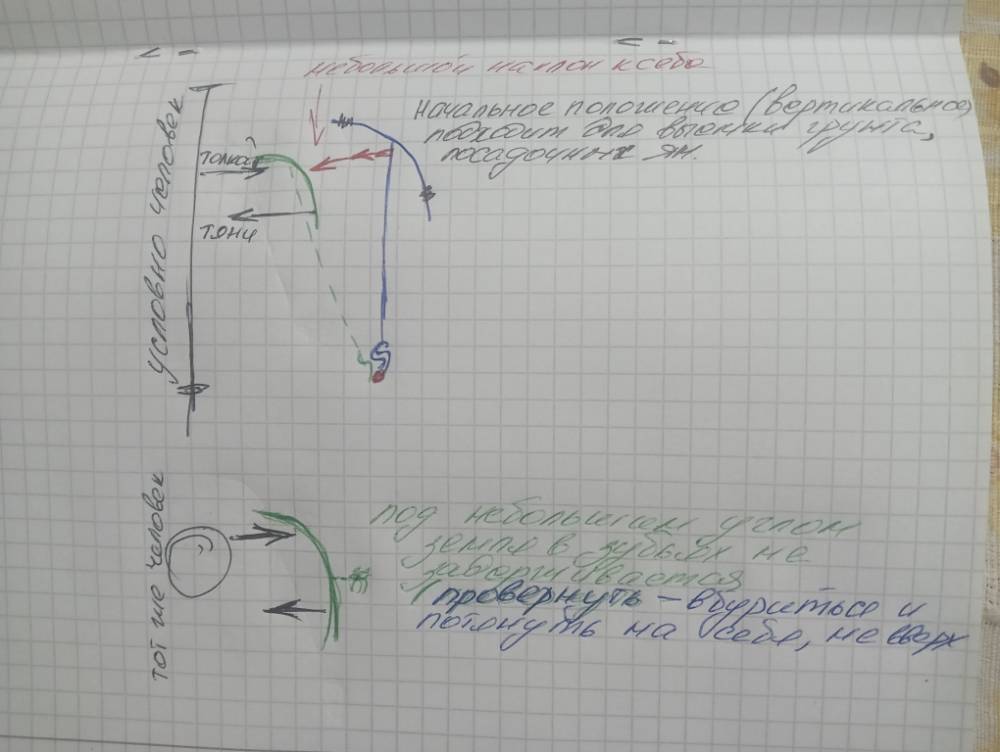 небольшой наклон к себе
Начальное положение (вертикальное)
подходит для выемки грунта,
посадочных ям.
условно человек
толкай
тяни
тот же человек
под небольшим углом
земля в зубьях не
заборчивается
провернуть – вбуриться и
потянуть на себя, не вверх